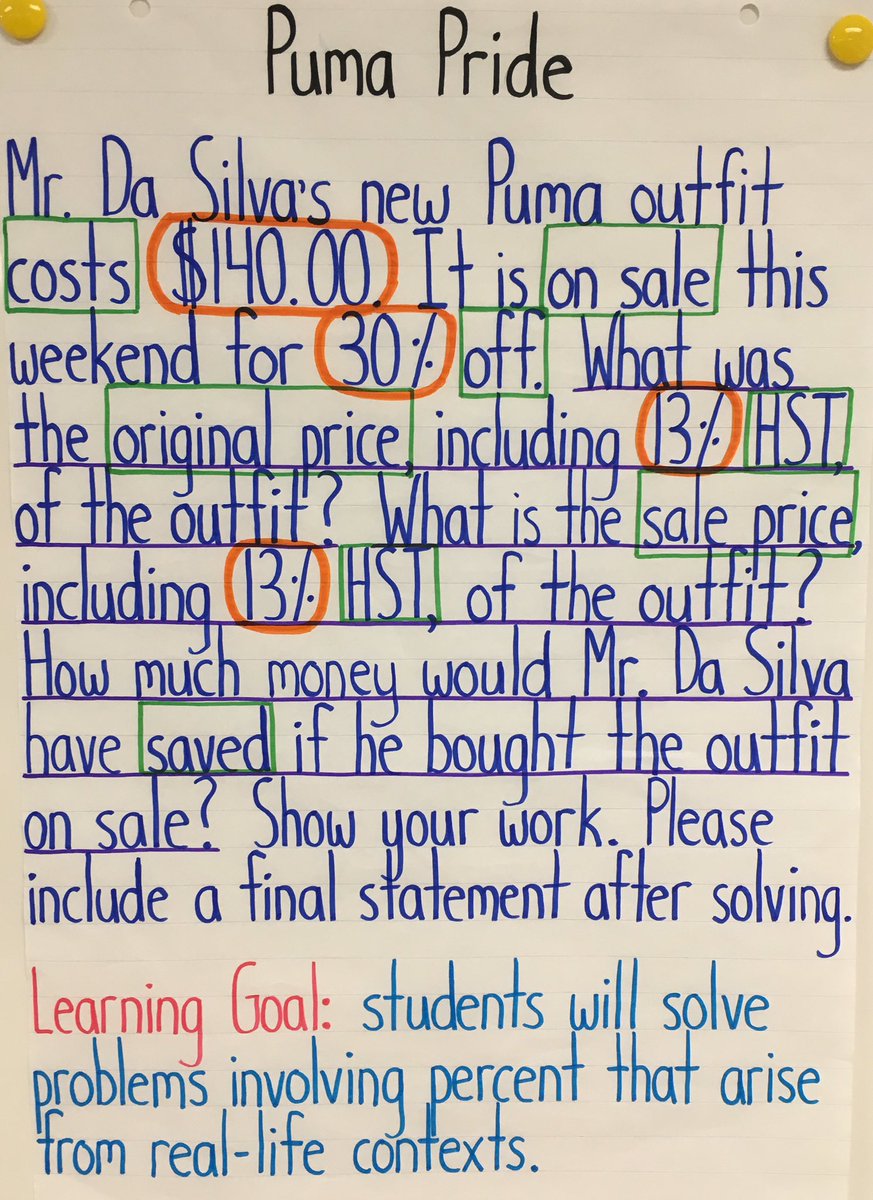 Puma Pride
Mr. Da Silva's new Puma outfit
costs $140.00. It is on sale this
weekend for 30% off. What was
the original price, including 13% HST,
of the outfit? What is the sale price,
including 13% HST, of the outfit?
How much money would Mr. Da Silva
have saved if he bought the outfit
on sale? Show your work. Please
include a final statement after solving.
Learning Goal: students will solve
problems involving percent that arise
from real-life contexts.